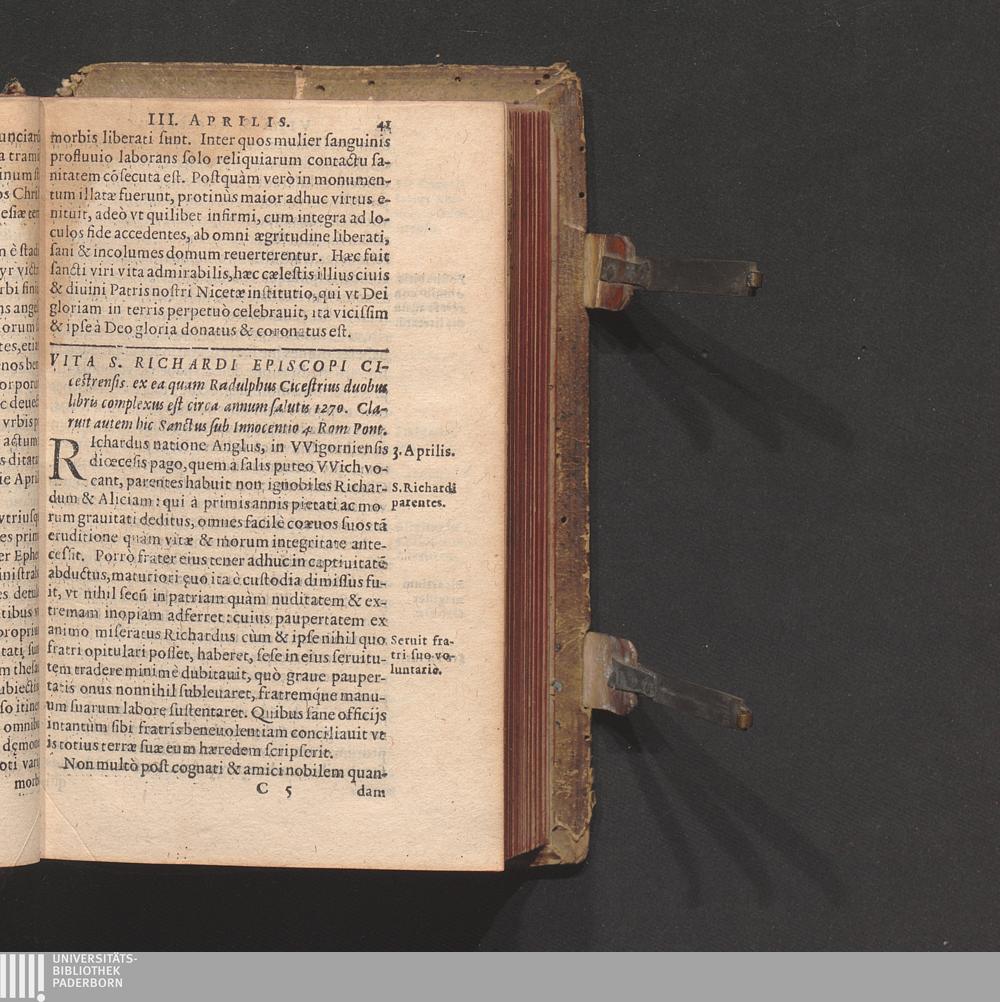 III. APRILIS. 41
morbis liberati ſunt. Inter quos mulier ſanguinis
profluuio laborans ſolo reliquiarum contactu ſa-
nitatem cõſecuta eſt. Poſtquàm verò in monumen-
tum illatæ fuerunt, protinùs maior adhuc virtus e-
nituit, adeò vt quilibet infirmi, cum integra ad lo-
culos fide accedentes, ab omni ægritudine liberati,
ſani & incolumes domum reuerterentur. Hæc fuit
ſancti viri vita admirabilis, hæc cæleſtis illius ciuis
& diuini Patris noſtri Nicetæ inſtitutio, qui vt Dei
gloriam in terris perpetuò celebrauit, ita viciſſim
& ipſe à Deo gloria donatus & coronatus eſt.
VITA S. RICHARDI EPISCOPI CI-
ceſtrenſis ex ea quam Radulphus Ciceſtrius duobus
libris complexus eſt circa annum ſalutis 1270. Cla-
ruit autem hic Sanctus ſub Innocentio 4. Rom Pont.
RIchardus natione Anglus, in VVigornienſis
3. Aprilis.
diœceſis pago, quem à ſalis puteo VVich vo-
cant, parentes habuit non ignobiles Richar-
S. Richardi
dum & Aliciam: qui à primis annis pietati ac mo-
parentes.
rum grauitati deditus, omnes facilè coæuos ſuos tã
eruditione quàm vitæ & morum integritate ante-
ceſſit. Porrò frater eius tener adhuc in captiuitatẽ
abductus, maturiori æuo ita è cuſtodia dimiſſus fu-
it, vt nihil ſecũ in patriam quàm nuditatem & ex-
tremam inopiam adferret: cuius paupertatem ex
animo miſeratus Richardus cùm & ipſe nihil quo
Seruit fra-
fratri opitulari poſſet, haberet, ſeſe in eius ſeruitu-
tri ſuo vo-
tem tradere minimè dubitauit, quò graue pauper-
luntariè.
tatis onus nonnihil ſubleuaret, fratremque manu-
um ſuarum labore ſuſtentaret. Quibus ſane officijs
intantùm ſibi fratris beneuolentiam conciliauit vt
is totius terræ ſuæ eum hæredem ſcripſerit.
Non multò poſt cognati & amici nobilem quan-
C 5 dam
UNIVERSITÄTS-
BIBLIOTHEK
PADERBORN